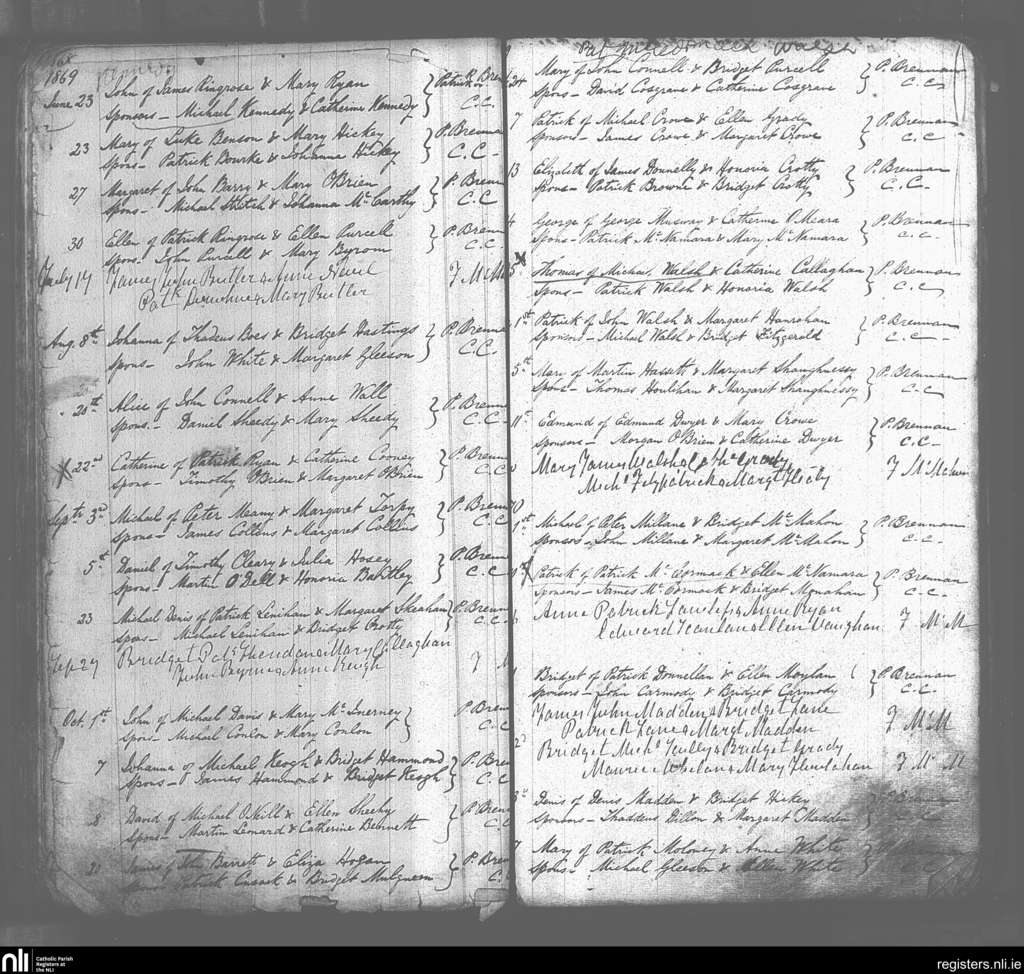 1869
June 23 John of James Ringrose & Mary Ryan } Patrick Bren
Sponsors - Michael Kennedy & Catherine Kennedy C.C.
23 Mary of Luke Benson & Mary Hickey } P. Brenna
Spons - Patrick Bourke & Johanna Hickey C.C.
27 Margaret of John Barry & Mary O'Brien } P. Brenn
Spons - Michael & Johanna Mc Carthy C.C
30 Ellen of Patrick Ringrose & Ellen Purcell } P. Brenn
Spons. John Purcell & Mary Byrom C.C.
July 14 James John Butler & Anne Nevil F McM
Patk & Mary Butler
Aug. 8th Johanna of Thadeus Boes & Bridget Hastings } P. Brenna
Spons - John White & Margaret Gleeson C.C.
20th Alice of John Connell & Anne Wall } P. Brenn
Spons. - Daniel Sheedy & Mary Sheedy C.C-
X 22nd Catherine of Patrick Ryan & Catherine Cooney } P. Brenn
Spons - Timothy O'Brien & Margaret O'Brien C.C
Septr 3rd Michael of Peter Meany & Margaret Torpy } P. Brenn
Spons - James Collins & Margaret Collins C.C
5th Daniel of Timothy Cleary & Julia Hosey } P. Brenn
Spons - Martin O'Dell & Honoria C.C
23 Michael Denis of Patrick Lenihan & Margaret Sheahan } P. Brenn
Spons - Michael Lenihan & Bridget Crotty C.C.
Sep 27 Bridget Patk Sheridan & Mary Callaghan F M
John Byrne & Anne Keogh
Oct. 1st John of Michael Davis & Mary Mc Inerney } P. Bren
Spons - Michael Conlon & Mary Conlon C.C
7 Johanna of Michael Keogh & Bridget Hammond } P. Bre
Spons - James Hammond & Bridget Keogh C.C
8 David of Michael O'Neill & Ellen Sheehy } P. Bren
Spons - Martin Leonard & Catherine Bennett C.C
21 James of John Barrett & Eliza Hogan } P. Bre
Patrick Cusack & Bridget Mulqueen C.
Pat Walsh
24 Mary of John Connell & Bridget Purcell } P. Brennan
Spons - David Cosgrave & Catherine Cosgrave C.C,
7 Patrick of Michael Crowe & Ellen Grady } P. Brennan
Sponsors - James Crowe & Margaret Crowe C.C
13 Elizabeth of James Donnelly & Honoria Crotty } P. Brennan
Spons - Patrick Browne & Bridget Crotty C.C.
4 George of George & Catherine O'Meara } P. Brennan
Spons - Patrick Mc Namara & Mary Mc Namara C.C.
5 X Thomas of Michael Walsh & Catherine Callaghan } P. Brennan
Spons - Patrick Walsh & Honoria Walsh C.C,
1st Patrick of John Walsh & Margaret Hanrahan } P. Brennan
Sponsors - Michael Walsh & Bridget Fitzgerald C.C.
5th Mary of Martin Hassett & Margaret Shaughnessy } P. Brennan
Spons - Thomas Houlihan & Margaret Shaughnessy C.C
11th Edmund of Edmund Dwyer & Mary Crowe } P. Brennan
Sponsors - Morgan O'Brien & Catherine Dwyer C.C.
Mary James Walsh & Grady F McMahon
Michl Fitzpatrick & Margt
70
1st Michael of Peter Millane & Bridget Mc Mahon } P. Brennan
Sponsors - John Millane & Margaret McMahon C.C.
X Patrick of Patrick Mc Cormack & Ellen McNamara } P. Brennan
Sponsors - James McCormack & Bridget Moynahan C.C.
Anne Patrick & Anne Ryan F McM
Edward & Ellen Vaughan
Bridget of Patrick Donnellan & Ellen Moylan } P. Brennan
Sponsors - John Carmody & Bridget Carmody C.C.
James John Madden & Bridget Lane F McM
Patrick Lane & Margt Madden
2d Bridget Michl & Bridget Grady F Mc M
Maurice Whelan & Mary
3d Denis of Denis Madden & Bridget Hickey
Sponsors - Thaddeus Dillon & Margaret Madden
7 Mary of Patrick Moloney & Anne White
Spons - Michael Gleeson & Ellen White
nli Catholic Parish
Registers at
the NLI
registers.nli.ie